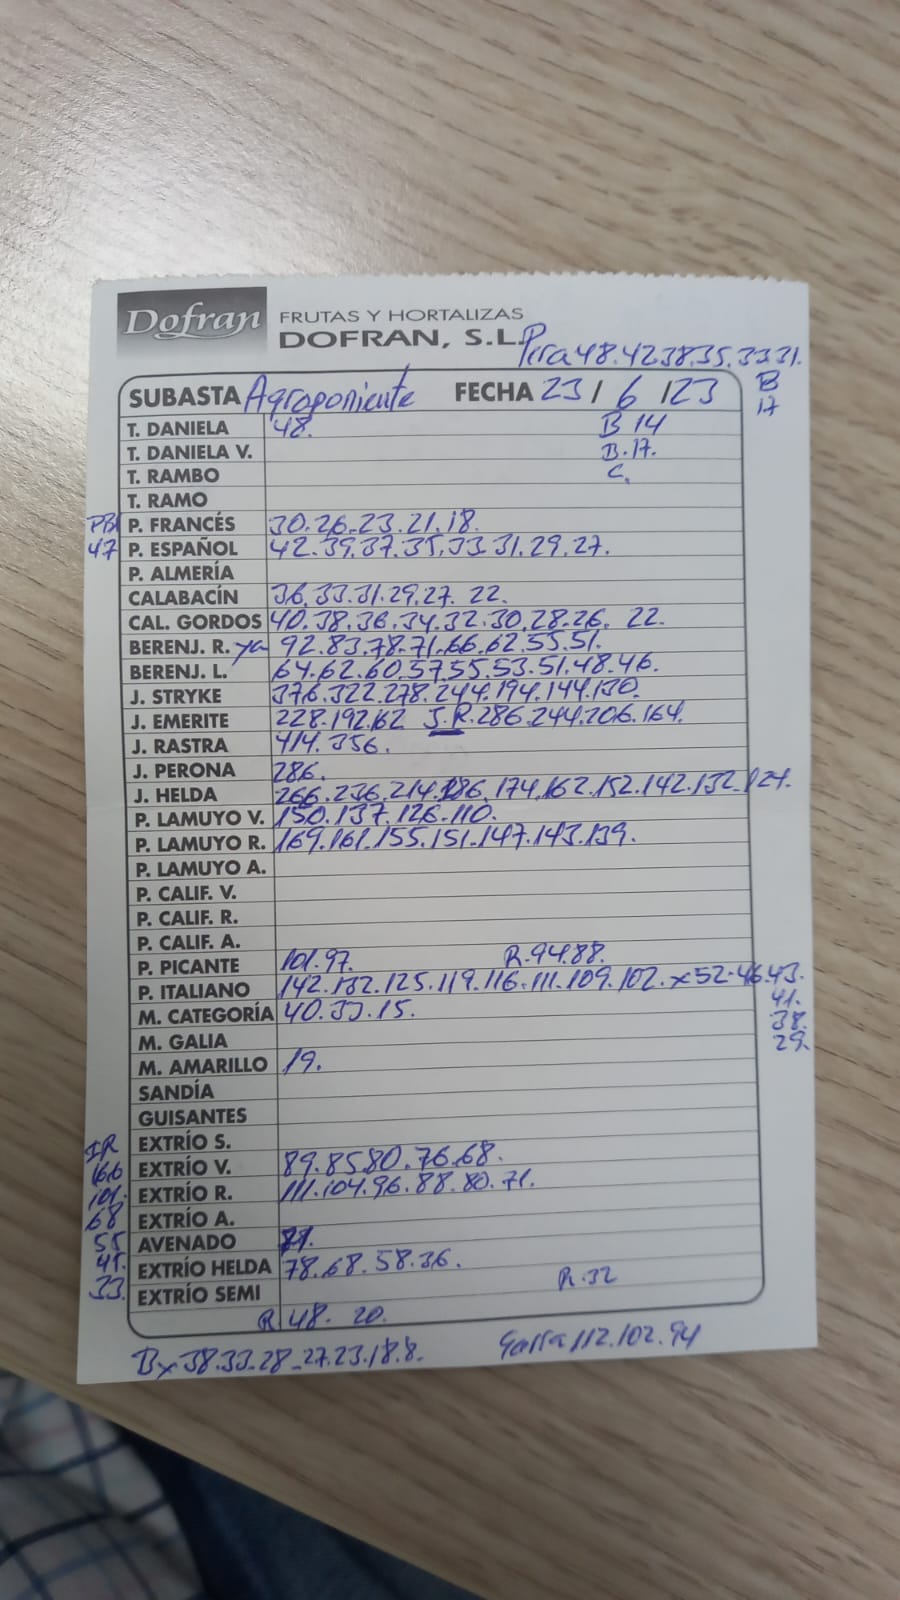 Dofran FRUTAS Y HORTALIZAS
DOFRAN, S.L.
Pera 48.42.38.35.33.31.
B
17
SUBASTA Agroponiente FECHA 23/6/23
T. DANIELA 48. B 14
T. DANIELA V. B.17.
T. RAMBO C.
T. RAMO
PB P. FRANCÉS 30.26.23.21.18.
47 P. ESPAÑOL 42.39.37.35.33.31.29.27.
P. ALMERÍA
CALABACÍN 36.33.31.29.27. 22.
CAL. GORDOS 40.38.36.34.32.30.28.26. 22.
BERENJ. R. ya 92.83.78.71.66.62.55.51.
BERENJ. L. 64.62.60.57.55.53.51.48.46.
J. STRYKE 376.322.278.244.194.144.130.
J. EMERITE 228.192.162 J.R.286.244.206.164.
J. RASTRA 414.356.
J. PERONA 286.
J. HELDA 266.236.214.186.174.162.152.142.132.124.
P. LAMUYO V. 150.137.126.110.
P. LAMUYO R. 169.161.155.151.147.143.139.
P. LAMUYO A.
P. CALIF. V.
P. CALIF. R.
P. CALIF. A.
P. PICANTE 101.97. R.94.88.
P. ITALIANO 142.132.125.119.116.111.109.102. x 52-46.43.
41.
38.
29.
M. CATEGORÍA 40.33.15.
M. GALIA
M. AMARILLO 19.
SANDÍA
GUISANTES
EXTRÍO S.
IR
166 EXTRÍO V. 89.85.80.76.68.
101. EXTRÍO R. 111.104.96.88.80.71.
68 EXTRÍO A.
55 AVENADO
41. EXTRÍO HELDA 78.68.58.36.
33. EXTRÍO SEMI R.32
R 48. 20.
Bx 38.33.28-27.23.18.8. 112.102.94